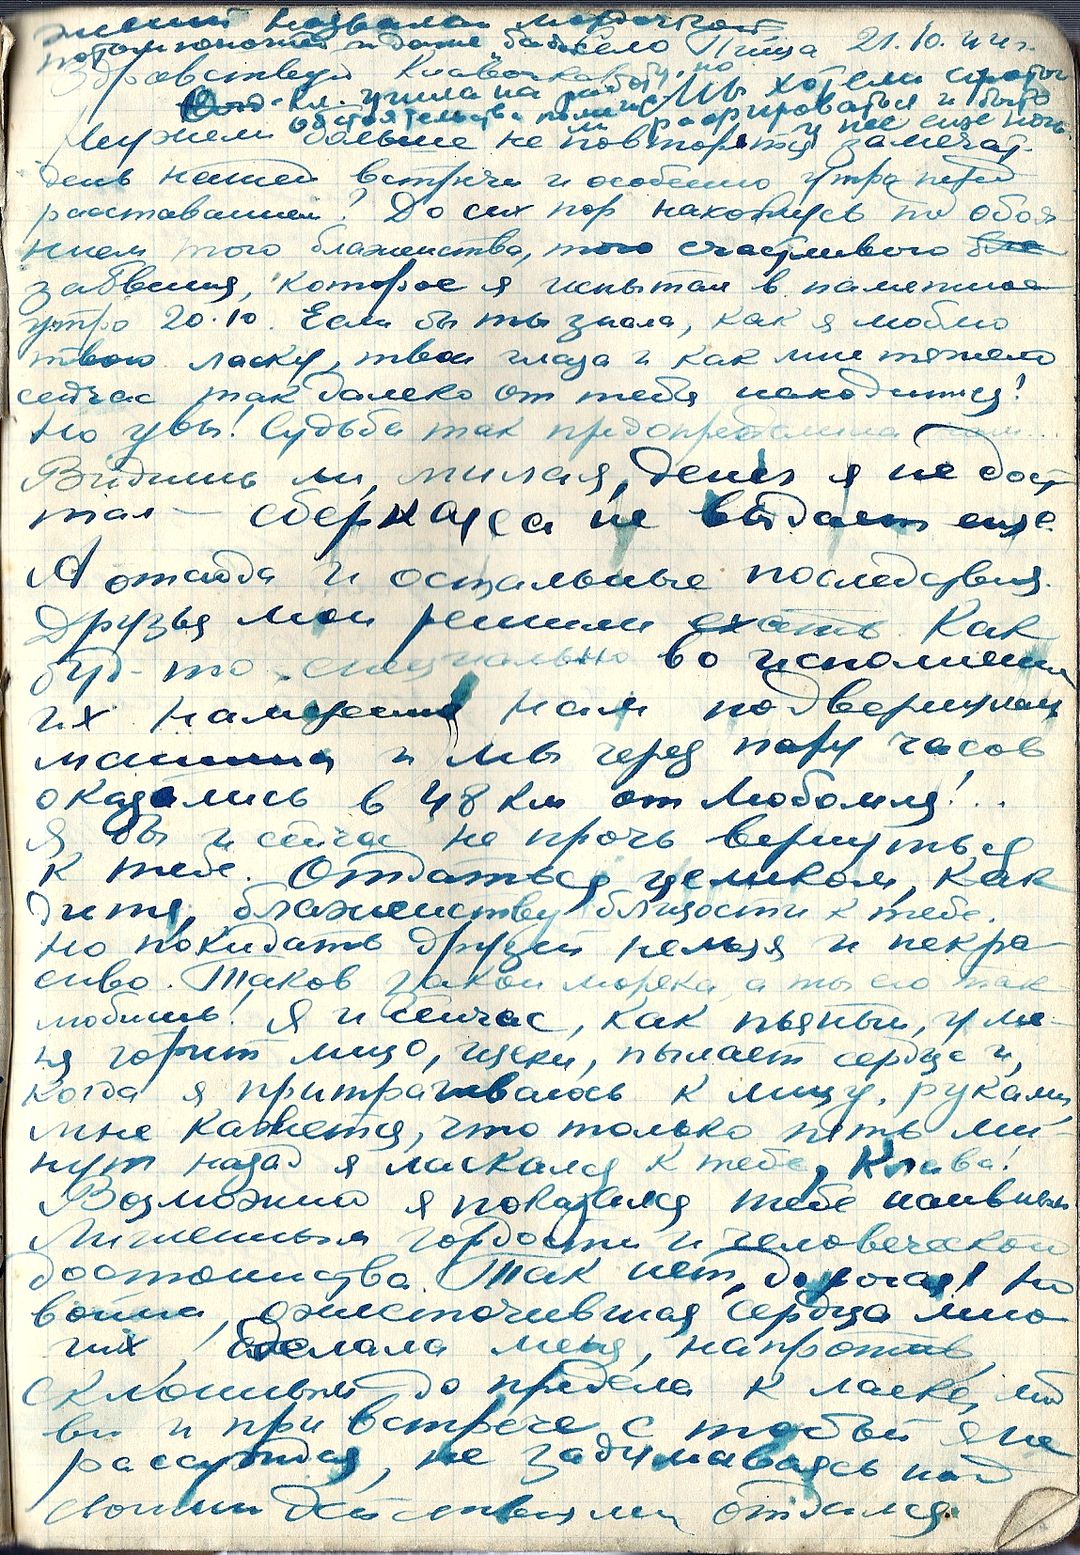 село Пища 21.10.44 г.
Здравствуй Клавочка
Мы хотели
Неужели больше не повторятся замечат.
день нашей встречи и особенно утра перед
расставанием? До сих пор нахожусь под обоя-
нием того блаженства, того счастливого
забвения, которое я испытал в памятное
утро 20.10. Если бы ты знала, как я люблю
твою ласку, твои глаза и как мне тяжело
сейчас так далеко от тебя находится!
Но увы! Судьба так предопределила нам...
Видишь ли, милая, денег я не дос-
тал — сберкасса не выдает еще.
А отсюда и остальные последствия.
Друзья мои решили ехать. Как
буд-то специально во исполнении
их намерения нам подвернулась
машина и мы через пару часов
оказались в 48 км от Любомля!..
Я бы и сейчас не прочь вернуться
к тебе. Отдаться целиком, как
дитя, блаженству близости к тебе.
Но покидать друзей нельзя и некра-
сиво. Таков закон моряка, а ты его так
любишь! Я и сейчас, как пьяный, у ме-
ня горит лицо, щеки, пылает сердце и,
когда я притрагиваюсь к лицу руками,
мне кажется, что только пять ми-
нут назад я ласкался к тебе, Клава!
Возможно я показался тебе наивным
лишенным гордости и человеческого
достоинства. Так нет, дорогая! Но
война, ожесточившая сердца мно-
гих, сделала меня, напротив,
склонным до предела к ласке, люб
ви и при встрече с тобой я не
рассуждая, не задумываясь над
своими действиями отдался.